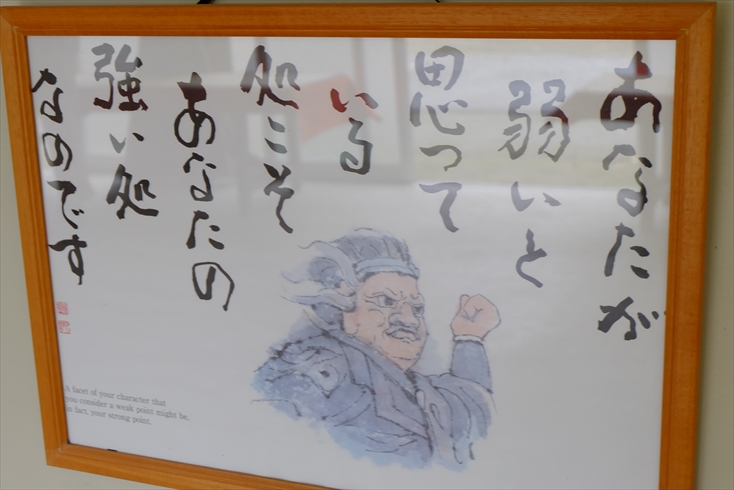 あなたが
弱いと
思って
いる
処こそ
あなたの
強い処
なのです
A facet of your character that
you consider a weak point might be,
in fact, your strong point.